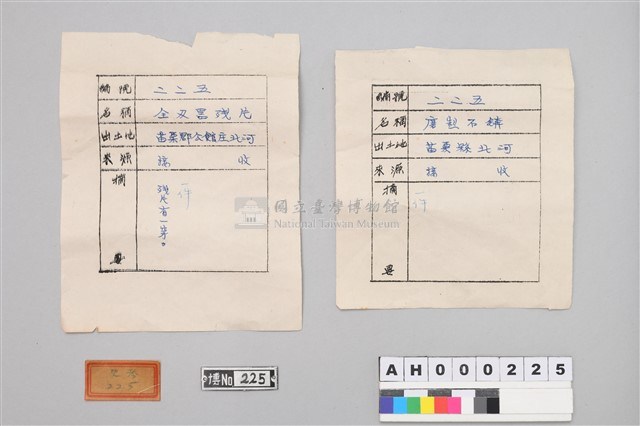 編號 二二五
名稱
出土地 苗栗郡公館庄北河
來源 接收
摘要
一件
編號 二二五
名稱 磨製石錛
出土地 苗栗縣北河
來源 接收
摘要
一件
國立臺灣博物館
National Taiwan Museum
225
博No 225
AH000225